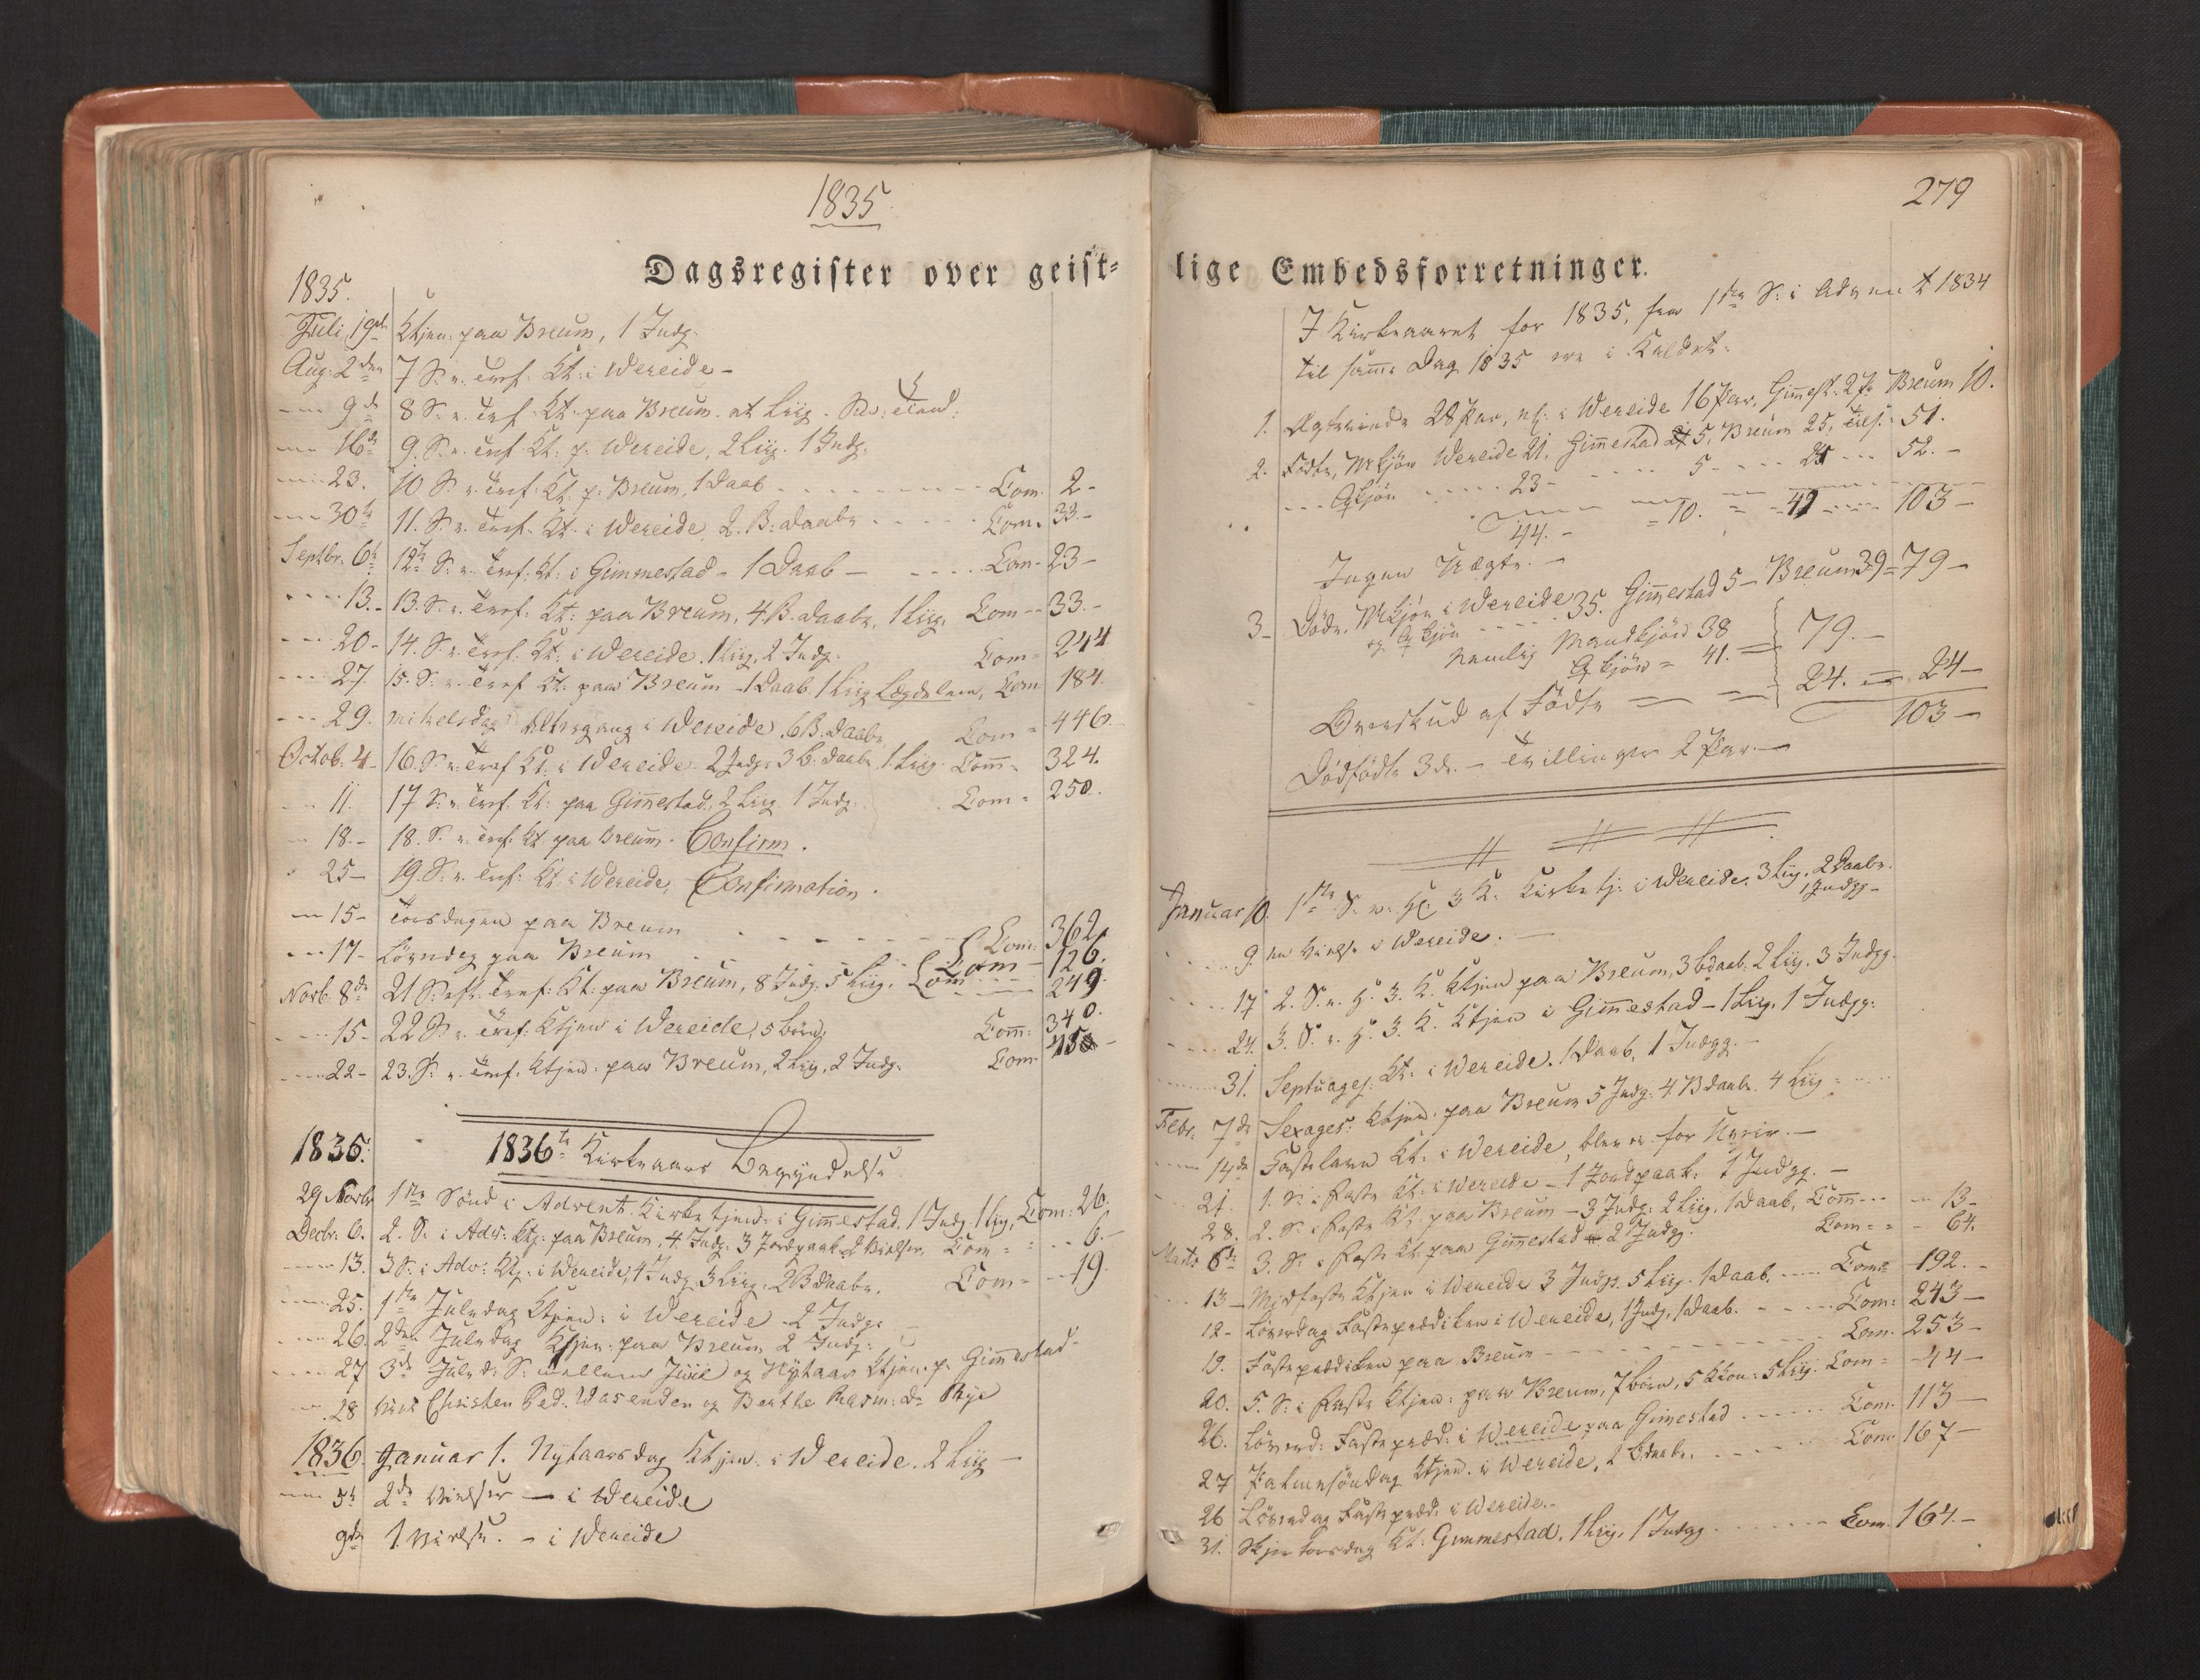 1835
Dagsregister over geist=
1835.
Juli 19de Ktjen: paa Breum, 1 Indg.
Aug: 2den 7 S. e. Tref. Kt: i Wereide –
9de 8 S. e. Tref. Kt. paa Breum. at Liig.
16de 9. S. e. Tref Kt: p. Wereide, 2 Liig. 1 Indg.
23. 10 S. e. Tref: Kt. p. Breum, 1 Daab Com. 2 –
30te 11. S. e. Tref. Kt. i Wereide 2. B. Daabe Com. 33. –
Septbr. 6te 12te S. e. Tref: Kt: i Gimmestad – 1 Daab – Com – 23 –
13. – 13. S. e. Tref: Kt: paa Breum, 4. B. Daabe, 1 Liig. Com – 33. –
20 – 14. S. e. Tref. Kt. i Wereide. 1 Liig, 2 Indg. Com = 244
27. 15. S. e. Tref Kt: paa Breum – 1 Daab. 1 Liig Com 184.
29. Mikelsdag Altergang i Wereide. 6 B. Daabe Com = 446
Octob: 4 – 16. S. e. Tref Kt. i Wereide. 2 Indg: 3 B. Daabe 1 Liig. Com = 324.
11. 17 S. e. Tref. Kt: paa Gimestad, 2 Liig. 1 Indg. Com = 250.
18. – 18. S. e. Tref: Kt paa Breum. Confirm.
25 – 19. S. e. Tref: Kt: i Wereide, Confirmation.
15 – Torsdagen paa Breum Com: 362.
17 – Løverdag paa Breum Com – 126.
Novb. 8de 21 S. eft. Tref: Kt: paa Breum, 8 Indg. 5 Liig. Com 249.
15 – 22 S. e. Tref: Ktjen i Wereide, 5 Børn, Com: 340.
22 – 23. S. e. Tref: Ktjen: paa Breum, 2 Liig, 2 Indg. Com
1836. 1836te Kirkeaars Begyndelse
29 Novbr 1ste Sønd i Advent. Kirketjen: i Gimestad. 1 Indg. 1 Liig, Com: 26.
Decbr: 6. 2. S. i Adv: Ktj. paa Breum, 4 Indg. 3 Jordpaak. 2 Vielser. Com = 6. –
13. 3 S. i Adv: Ktj: i Wereide, 4 Indg. 3 Liig. 2 B Daabe. Com = 19.
25. 1ste Juledag Ktjen: i Wereide – 2 Indg:
26. 2den Juledag Ktjen: paa Breum 2 Indg:
27 3de Juled: S: mellem Juul og Nytaar Ktjen: p. Gimestad –
28 Viet Christen Ped. Wasenden og Berthe Rasm: Dr Rye
1836. Januar 1. Nytaarsdag Ktjen: i Wereide. 2 Liig –
5te 2de Vielser – i Wereide
9de 1. Vielse. – i Wereide
279
lige Embedsforretninger.
I Kirkeaaret for 1835, fra 1ste S: i Advent 1834
til samme Dag 1835 ere i Kaldet:
1. Ægteviede 28 Par, nl: i Wereide 16 Par, Gimest: 2 P. Breum 10.
2. Fødte, Mkjøn Wereide 21, Gimestad 5, Breum 25, Tils: 51.
Qkjøn 23 – 5 – 24 52. –
44. – = 10. = 49 103 –
Ingen Uægte. –
3 – Døde, Mkjøn i Wereide 35. Gimestad 5 – Breum 39 = 79 –
og Qkjøn
Nemlig Mandkjøn 38
Qkjøn = 41. = 79. –
Overskud af Fødte 24. = 24 –
103 –
Dødfødte 3de. – Tvillinger 2 Par. –
Januar 10. 1ste S. e. H. 3 K. Kirketj: i Wereide, 3 Liig, 2 Daabe.
1 Indgg –
9. en Vielse i Wereide. –
17 2. S. e. H. 3. K. Ktjen paa Breum, 3 Bdaab, 2 Liig. 3 Indgg.
24. 3. S. e. H. 3. K. Ktjen i Gimestad – 1 Liig. 1 Indgg:
31. Septuages. Kt: i Wereide. 1 Daab, 1 Indgg. –
Febr. 7de Sexages: Ktjen: paa Breum 5 Indg: 4 B daabe. 4 Liig
14de Fastelavn Kt: i Wereide, blev ei for Uveir. –
21. 1. S: i Faste Kt: i Wereide – 1 Jordpaak: 1 Indgg. –
28. 2. S. i Faste Kt. paa Breum – 3 Indg: 2 Liig. 1 Daab, Com 13 –
Marts 6te 3. S. i Faste Kt paa Gimestad 2 Indg: Com = 64.
13 – Midfaste Ktjen i Wereide 3 Indg. 5 Liig. 1 Daab. Com = 192. –
12 – Løverdag Fasteprædiken i Wereide, 1 Indg, 1 Daab. Com: 243 –
19. Fasteprædiken paa Breum Com. 253 –
20. 5. S: i Faste Ktjen: paa Breum, 7 Børn, 5 Kkon: 5 Liig. Com = 44 –
26. Løverd: Fastepræd: i Wereide paa Gimestad Com. 113 –
27 Palmesøndag Ktjen. i Wereide, 2 Bdaabe. Com 167 –
26 Løverdag Fastepræd. i Wereide. –
31. Skjærtorsdag Kt: Gimmestad, 1 Liig, 1 Indgg. Com. 164. –